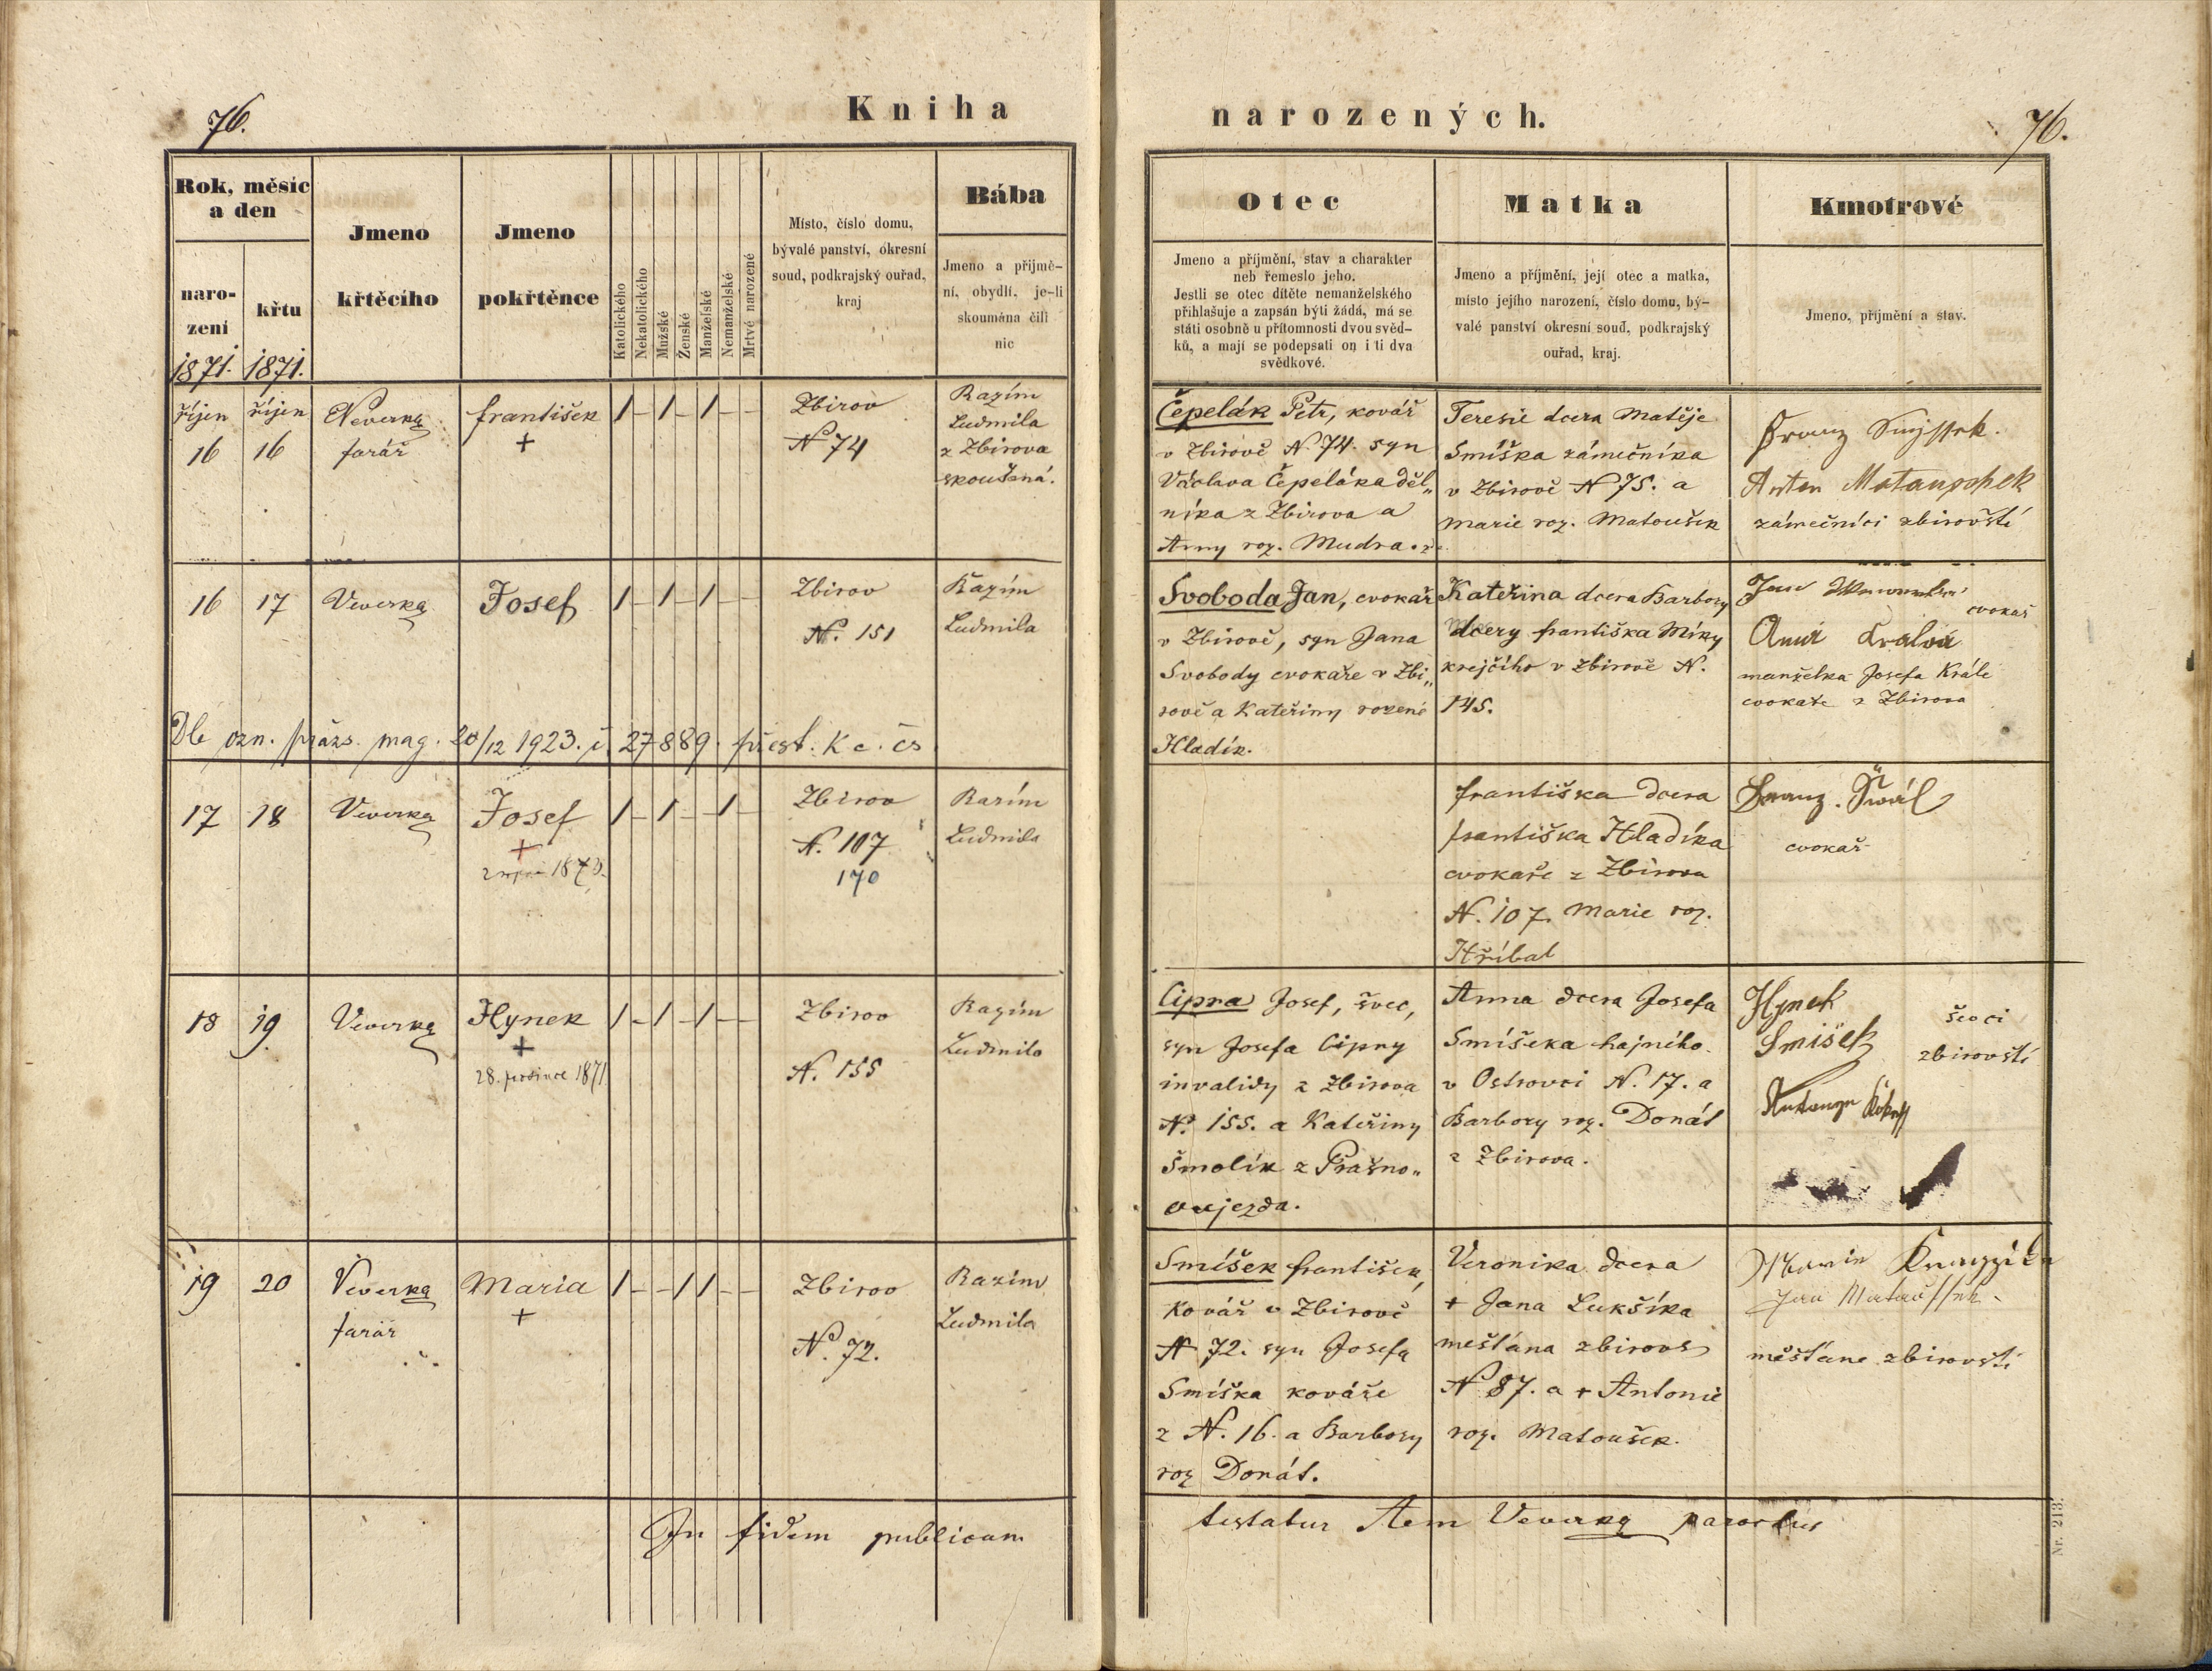 76.
Kniha
narozených.
76.
Rok, měsíc
a den
naro-
zení
křtu
1871.
1871.
Jmeno
křtěcího
Jmeno
pokřtěnce
Katolického
Nekatolického
Mužské
Ženské
Manželské
Nemanželské
Mrtvé narozené
Místo, číslo domu,
bývalé panství, okresní
soud, podkrajský ouřad,
kraj
Bába
Jmeno a přijmě-
ní, obydlí, je-li
skoumána čili
nic
Otec
Jmeno a příjmění, stav a charakter
neb řemeslo jeho.
Jestli se otec dítěte nemanželského
přihlašuje a zapsán býti žádá, má se
státi osobně u přítomnosti dvou svěd-
ků, a mají se podepsati on i ti dva
svědkové.
Matka
Jmeno a příjmění, její otec a matka,
místo jejího narození, číslo domu, bý-
valé panství okresní soud, podkrajský
ouřad, kraj.
Kmotrové
Jmeno, příjmění a stav.
říjen
16
říjen
16
Veverka
farář
František
+
1 - 1 - 1 - -
Zbirov
N 74
Razím
Ludmila
z Zbirova
skoušená.
Čepelák Petr, kovář
v Zbirově N. 74. syn
Václava Čepeláka děl„
níka z Zbirova a
Anny roz. Mudra.
Teresie dcera Matěje
Smíška zámečníka
v Zbirově N 75. a
Marie roz. Matoušek
Franz
Anton Mataуschek
zámečníci zbirovští
16
17
Veverka
Josef
1 - 1 - 1 - -
Zbirov
N. 151
Razím
Ludmila
Svoboda Jan, cvokař
v Zbirově, syn Jana
Svobody cvokaře v Zbi„
rově a Kateřiny rozené
Hladík.
Kateřina dcera Barbory
dcery Františka Míky
krejčího v Zbirově N.
145.
Jan
cvokař
Anna Kralová
manželka Josefa Krále
cvokaře z Zbirova
Dle ozn. pražs. mag. 20/12 1923. č. 27889. přest. k c. čs.
17
18
Veverka
Josef
+
1873.
1 - 1 - - 1 -
Zbirov
N. 107
170
Razím
Ludmila
Františka dcera
Františka Hladíka
cvokaře z Zbirova
N. 107. Marie roz.
Hříbal
Franz.
cvokař
18
19
Veverka
Hynek
+
28. prosince 1871
1 - 1 - 1 - -
Zbirov
N. 155
Razím
Ludmila
Cipra Josef, švec,
syn Josefa Cipry
invalidy z Zbirova
N. 155. a Kateřiny
Šmolík z Prašno„
oujezda.
Anna dcera Josefa
Smíšeka hajného
v Ostrovci N. 17. a
Barbory roz. Donát
z Zbirova.
Hynek
Smišek
ševci
zbirovští
19
20
Veverka
farář
Maria
+
1 - - 1 1 - -
Zbirov
N. 72.
Razím
Ludmila
Smíšek František,
Kovář v Zbirově
N 72. syn Josefa
Smíška kováře
z N. 16. a Barbory
roz Donát.
Veronika dcera
+ Jana Lukšíka
mešťána zbirovs
N 87. a + Antonie
roz. Matoušek.
Jan
měšťane zbirovští
In fidem publicam
testatur Ant Veverka parochus
Nr. 213.